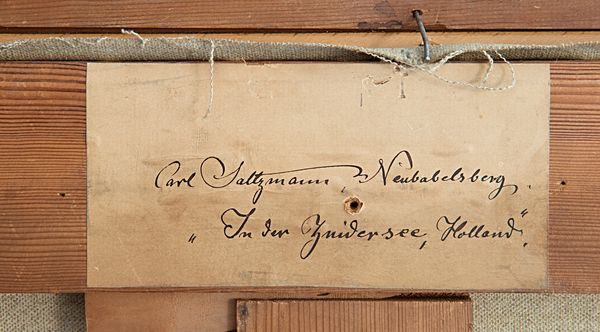 Carl Saltzmann, Neubabelsberg.
„In der Zuidersee, Holland“.